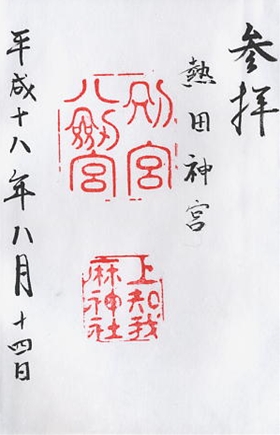 参拝
熱田神宮
別宮
八剱宮
上知我
麻神社
平成十八年八月十四日